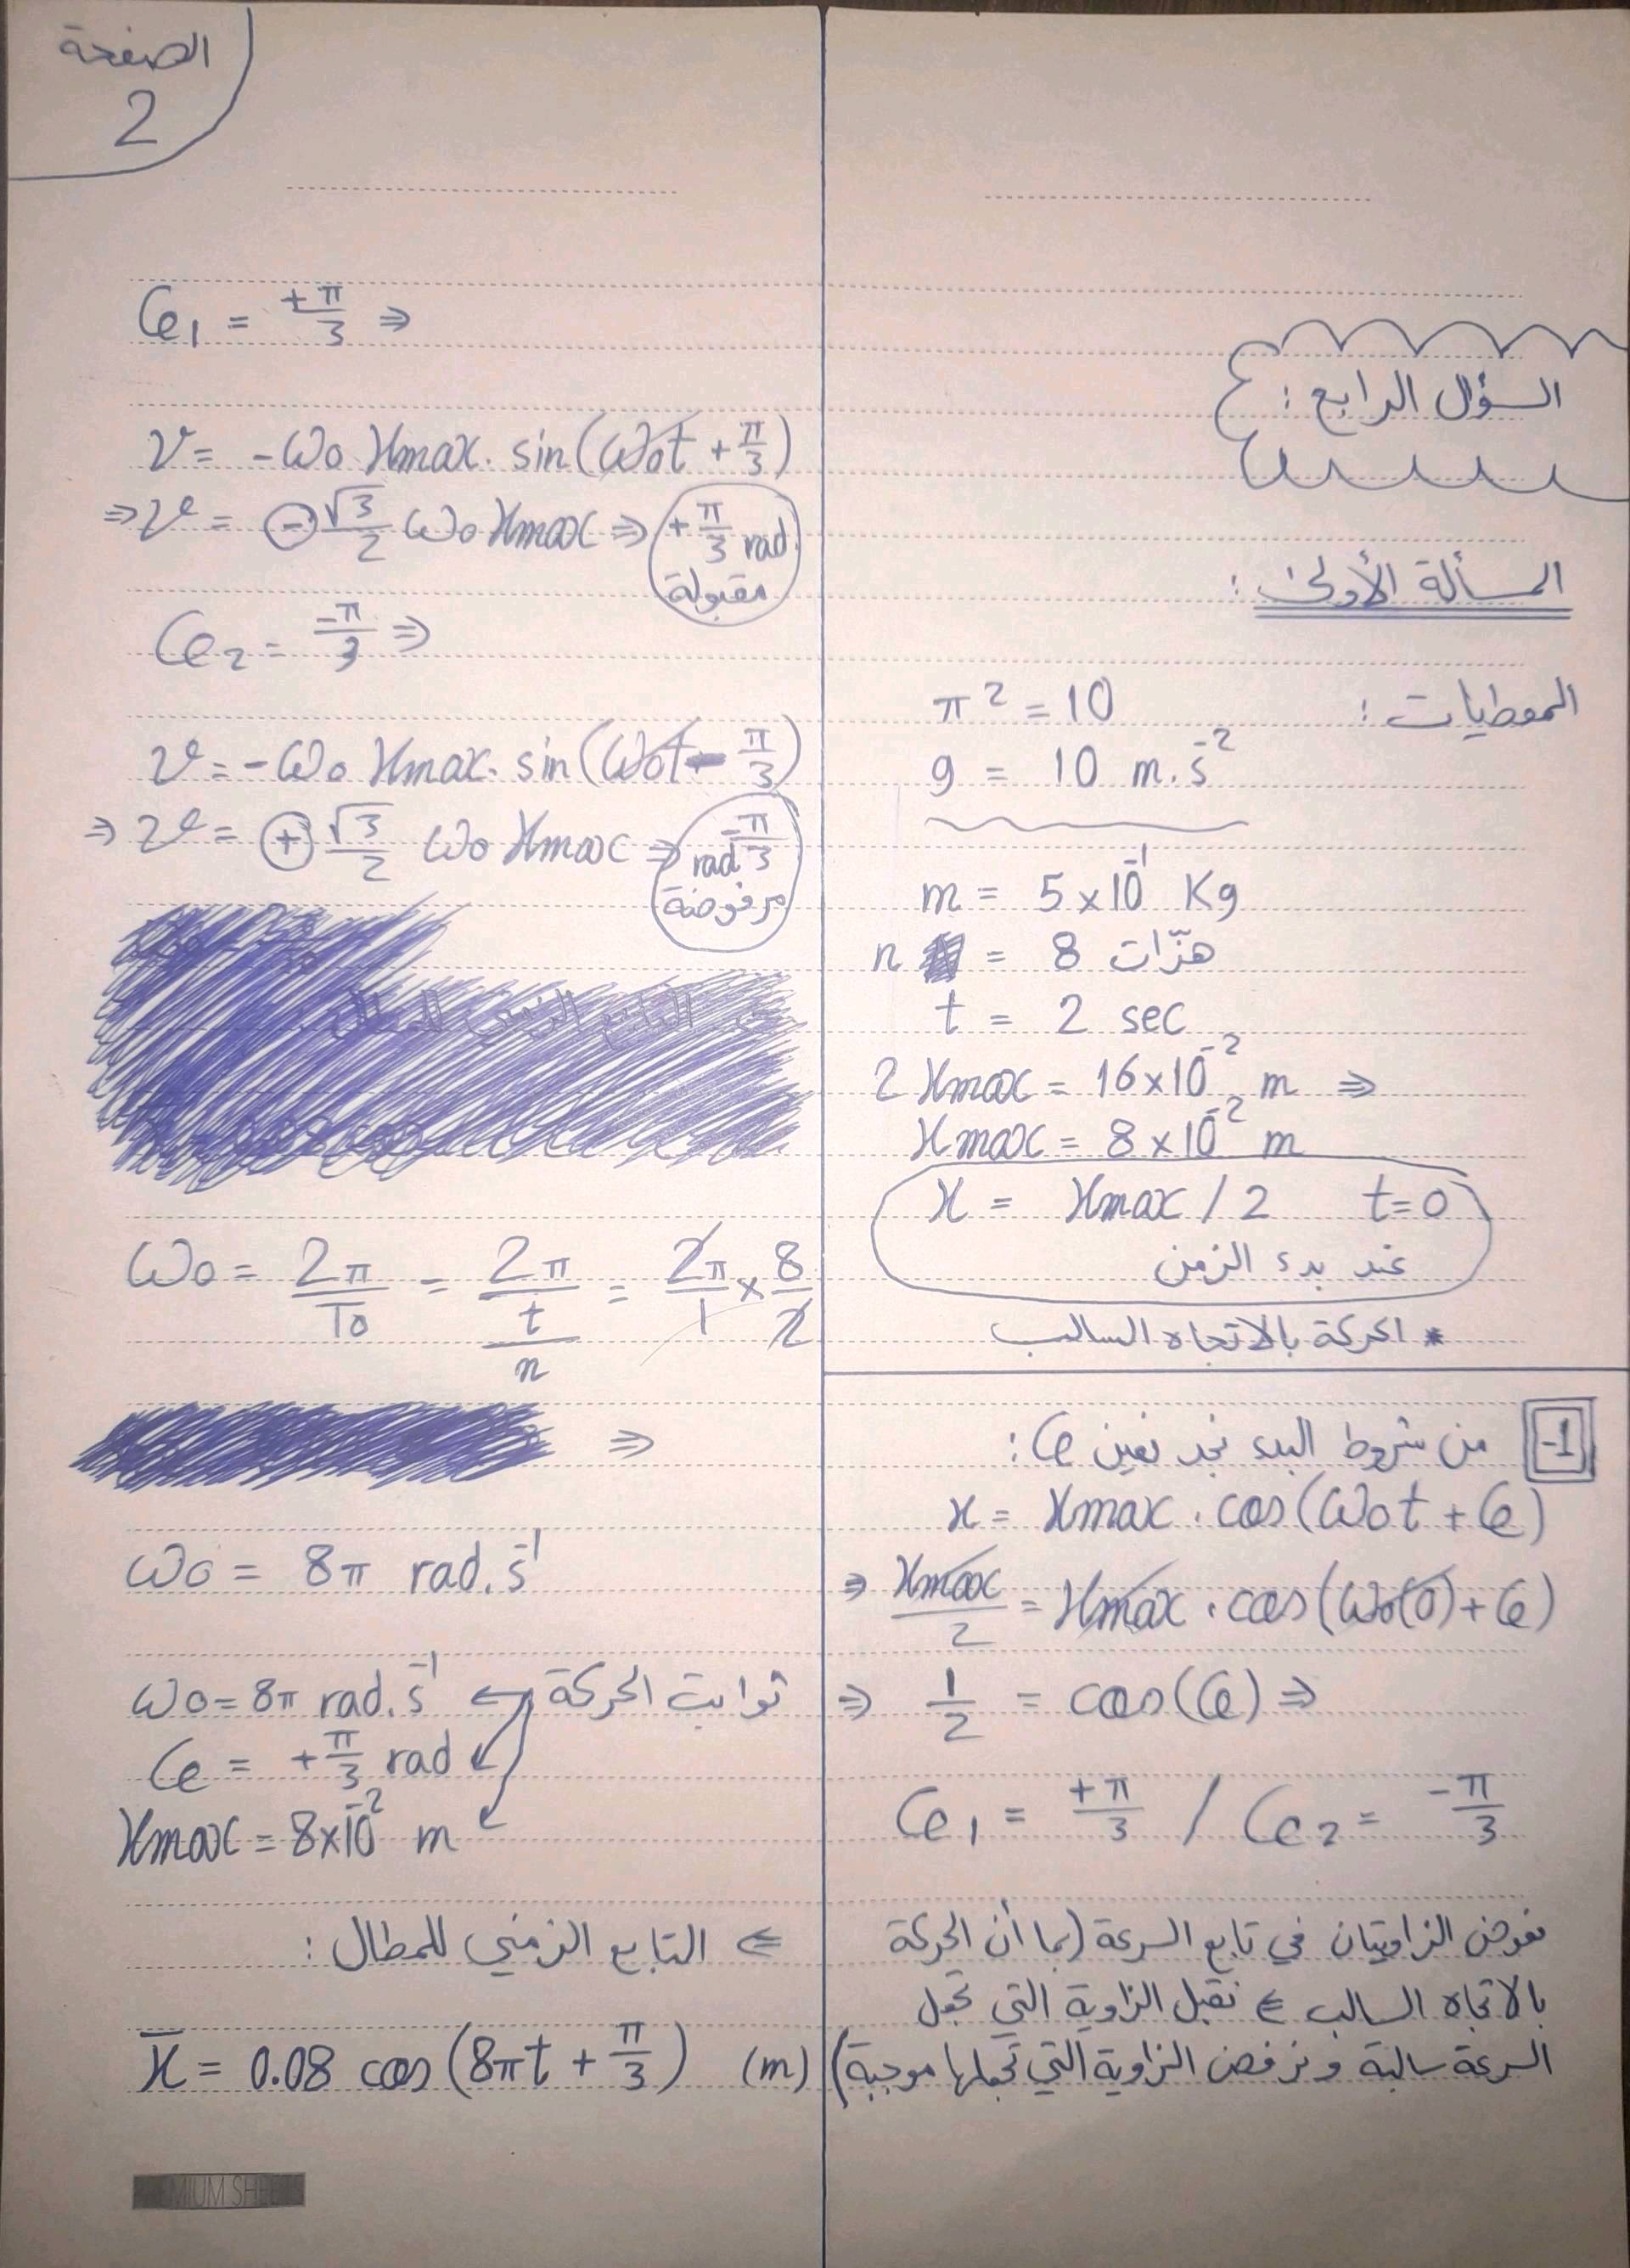 الصفحة
2
السؤال الرابع :
المسألة الأولى :
المعطيات :
π² = 10
g = 10 m.s⁻²
m = 5×10⁻¹ Kg
n = 8 هزّات
t = 2 sec
2 Xmax = 16×10⁻² m ⇒
Xmax = 8×10⁻² m
x = Xmax / 2 t=0
عند بدء الزمن
* الحركة بالاتجاه السالب
1-
من شروط البدء نجد نعين φ :
x = Xmax . cos(ω₀t + φ)
⇒ Xmax/2 = Xmax . cos(ω₀(0) + φ)
⇒ 1/2 = cos(φ) ⇒
φ₁ = +π/3 / φ₂ = -π/3
نعوض الزاويتان في تابع السرعة (بما أن الحركة
بالاتجاه السالب ⇐ نقبل الزاوية التي تجعل
السرعة سالبة ونرفض الزاوية التي تجعلها موجبة)
φ₁ = +π/3 ⇒
v = -ω₀ Xmax . sin(ω₀t + π/3)
⇒ v = - √3/2 ω₀ Xmax ⇒ +π/3 rad.
مقبولة
φ₂ = -π/3 ⇒
v = -ω₀ Xmax . sin(ω₀t - π/3)
⇒ v = + √3/2 ω₀ Xmax ⇒ -π/3 rad
مرفوضة
ω₀ = 2π/T₀ = 2π/(t/n) = 2π/1 × 8/2
⇒
ω₀ = 8π rad.s⁻¹
ثوابت الحركة
ω₀ = 8π rad.s⁻¹
φ = +π/3 rad
Xmax = 8×10⁻² m
⇐ التابع الزمني للمطال :
x̄ = 0.08 cos(8πt + π/3) (m)